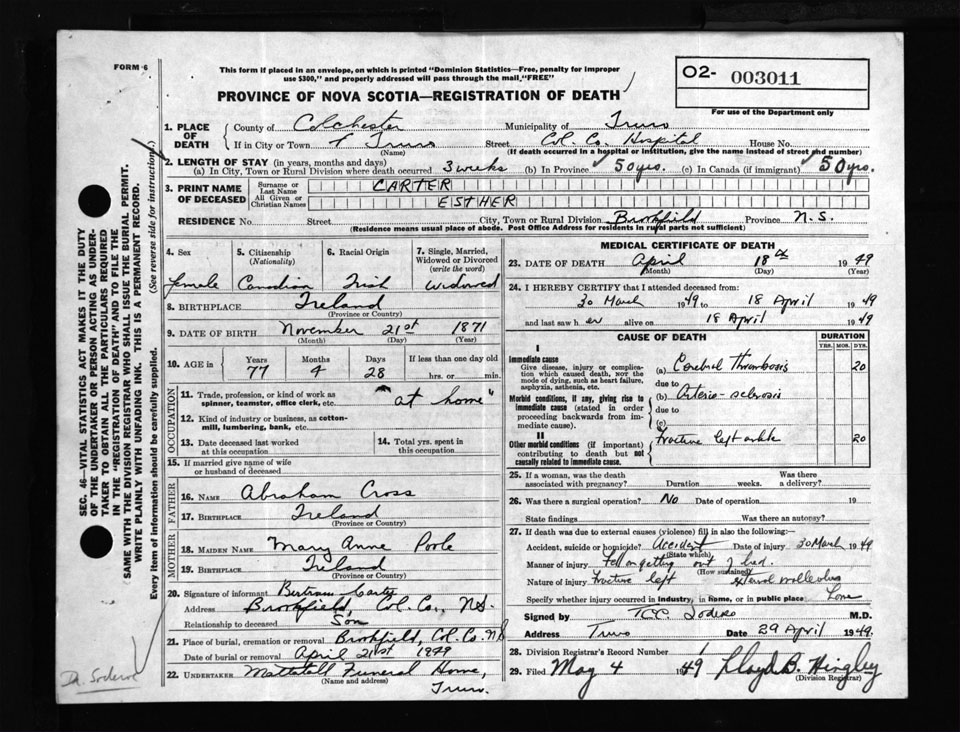 FORM 6
This form if placed in an envelope, on which is printed "Dominion Statistics—Free, penalty for improper
use $300," and properly addressed will pass through the mail, "FREE"
PROVINCE OF NOVA SCOTIA—REGISTRATION OF DEATH
O2- 003011
For use of the Department only
1. PLACE OF DEATH County of Colchester Municipality of Truro
If in City or Town of Truro Street Col. Co. Hospital House No.
(Name) (If death occurred in a hospital or institution, give the name instead of street and number)
2. LENGTH OF STAY (in years, months and days)
(a) In City, Town or Rural Division where death occurred 3 weeks (b) In Province 50 yrs. (c) In Canada (if immigrant) 50 yrs.
3. PRINT NAME OF DECEASED Surname or Last Name CARTER
All Given or Christian Names ESTHER
RESIDENCE No. Street City, Town or Rural Division Brookfield Province N.S.
(Residence means usual place of abode. Post Office Address for residents in rural parts not sufficient)
4. Sex female
5. Citizenship (Nationality) Canadian
6. Racial Origin Irish
7. Single, Married, Widowed or Divorced (write the word) widowed
8. BIRTHPLACE Ireland
(Province or Country)
9. DATE OF BIRTH November 21st 1871
(Month) (Day) (Year)
10. AGE in Years 77 Months 4 Days 28 If less than one day old hrs. or min.
OCCUPATION
11. Trade, profession, or kind of work as spinner, teamster, office clerk, etc. "at home"
12. Kind of industry or business, as cotton-mill, lumbering, bank, etc.
13. Date deceased last worked at this occupation
14. Total yrs. spent in this occupation
15. If married give name of wife or husband of deceased
FATHER
16. NAME Abraham Cross
17. BIRTHPLACE Ireland
(Province or Country)
MOTHER
18. MAIDEN NAME Mary Anne Poole
19. BIRTHPLACE Ireland
(Province or Country)
20. Signature of informant Bertram Carter
Address Brookfield, Col. Co., N.S.
Relationship to deceased Son
21. Place of burial, cremation or removal Brookfield, Col. Co. N.S
Date of burial or removal April 21st 1949
22. UNDERTAKER Mattatall Funeral Home,
(Name and address) Truro.
MEDICAL CERTIFICATE OF DEATH
23. DATE OF DEATH April 18th 1949
(Month) (Day) (Year)
24. I HEREBY CERTIFY that I attended deceased from:
30 March 1949 to 18 April 1949
and last saw her alive on 18 April 1949
CAUSE OF DEATH DURATION
YRS. MOS. DYS.
I
Immediate cause
Give disease, injury or complication which caused death, not the mode of dying, such as heart failure, asphyxia, asthenia, etc.
(a) Cerebral Thrombosis 20
due to
Morbid conditions, if any, giving rise to immediate cause (stated in order proceeding backwards from immediate cause).
(b) Arterio-sclerosis
due to
(c)
II
Other morbid conditions (if important) contributing to death but not causally related to immediate cause.
Fracture left ankle 20
25. If a woman, was the death associated with pregnancy? Duration weeks. Was there a delivery?
26. Was there a surgical operation? No Date of operation 19
State findings Was there an autopsy?
27. If death was due to external causes (violence) fill in also the following:—
Accident, suicide or homicide? Accident Date of injury 30 March 1949
(State which)
Manner of injury Fell on getting out of bed.
(How sustained)
Nature of injury fracture left external malleolus
Specify whether injury occurred in industry, in home, or in public place: home
Signed by M.D.
Address Truro Date 29 April 1949.
28. Division Registrar's Record Number
29. Filed May 4 1949 Lloyd B. Hingley
(Division Registrar)
SEC. 46—VITAL STATISTICS ACT MAKES IT THE DUTY
OF THE UNDERTAKER OR PERSON ACTING AS UNDER-
TAKER TO OBTAIN ALL THE PARTICULARS REQUIRED
IN THE "REGISTRATION OF DEATH" AND TO FILE THE
SAME WITH THE DIVISION REGISTRAR WHO SHALL ISSUE THE BURIAL PERMIT.
WRITE PLAINLY WITH UNFADING INK. THIS IS A PERMANENT RECORD.
Every item of information should be carefully supplied. (See reverse side for instructions.)